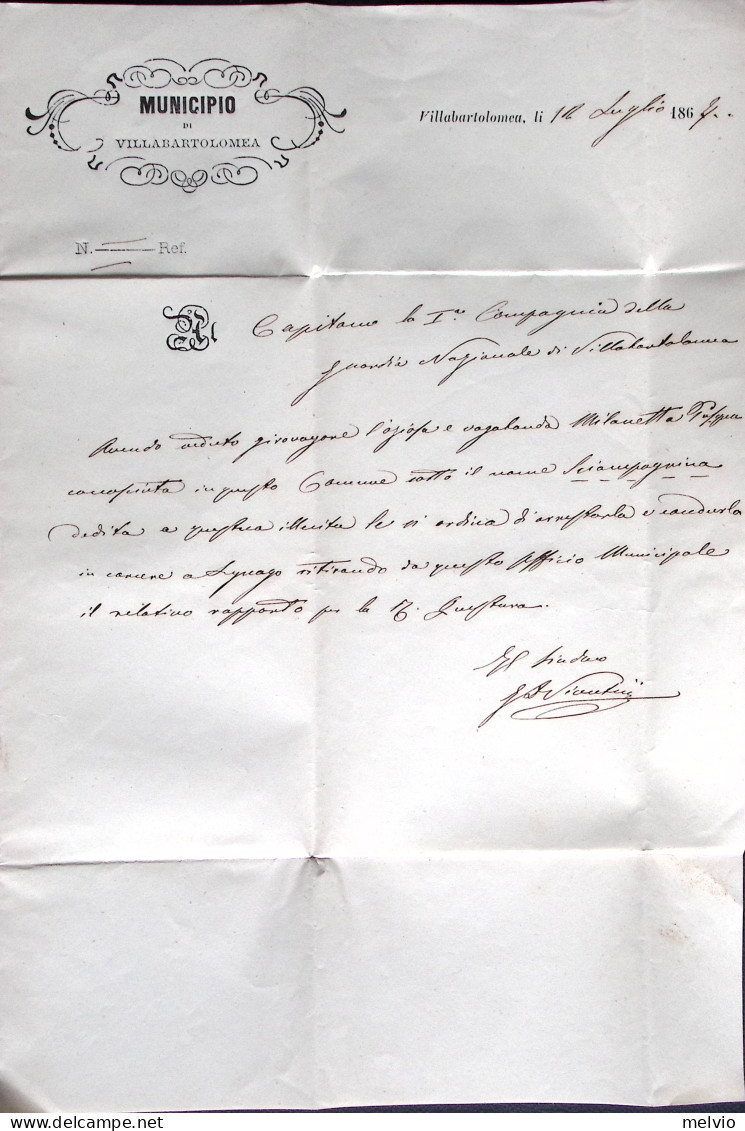 MUNICIPIO
DI
VILLABARTOLOMEA
Villabartolomea, li 12 Luglio 1867.
N. Ref.
Al Capitano la Iª Compagnia della
Guardia Nazionale di Villabartolomea
Avendo veduto girovagare l'oziosa e vagabonda Milanetta
conosciuta in questo Comune sotto il nome Sciampagnina
dedita a questua illecita le si ordina d'arrestarla e condurla
in carcere a Legnago ritirando da questo Ufficio Municipale
il relativo rapporto per la R. Questura.
Il Sindaco
delcampe.net
melvio